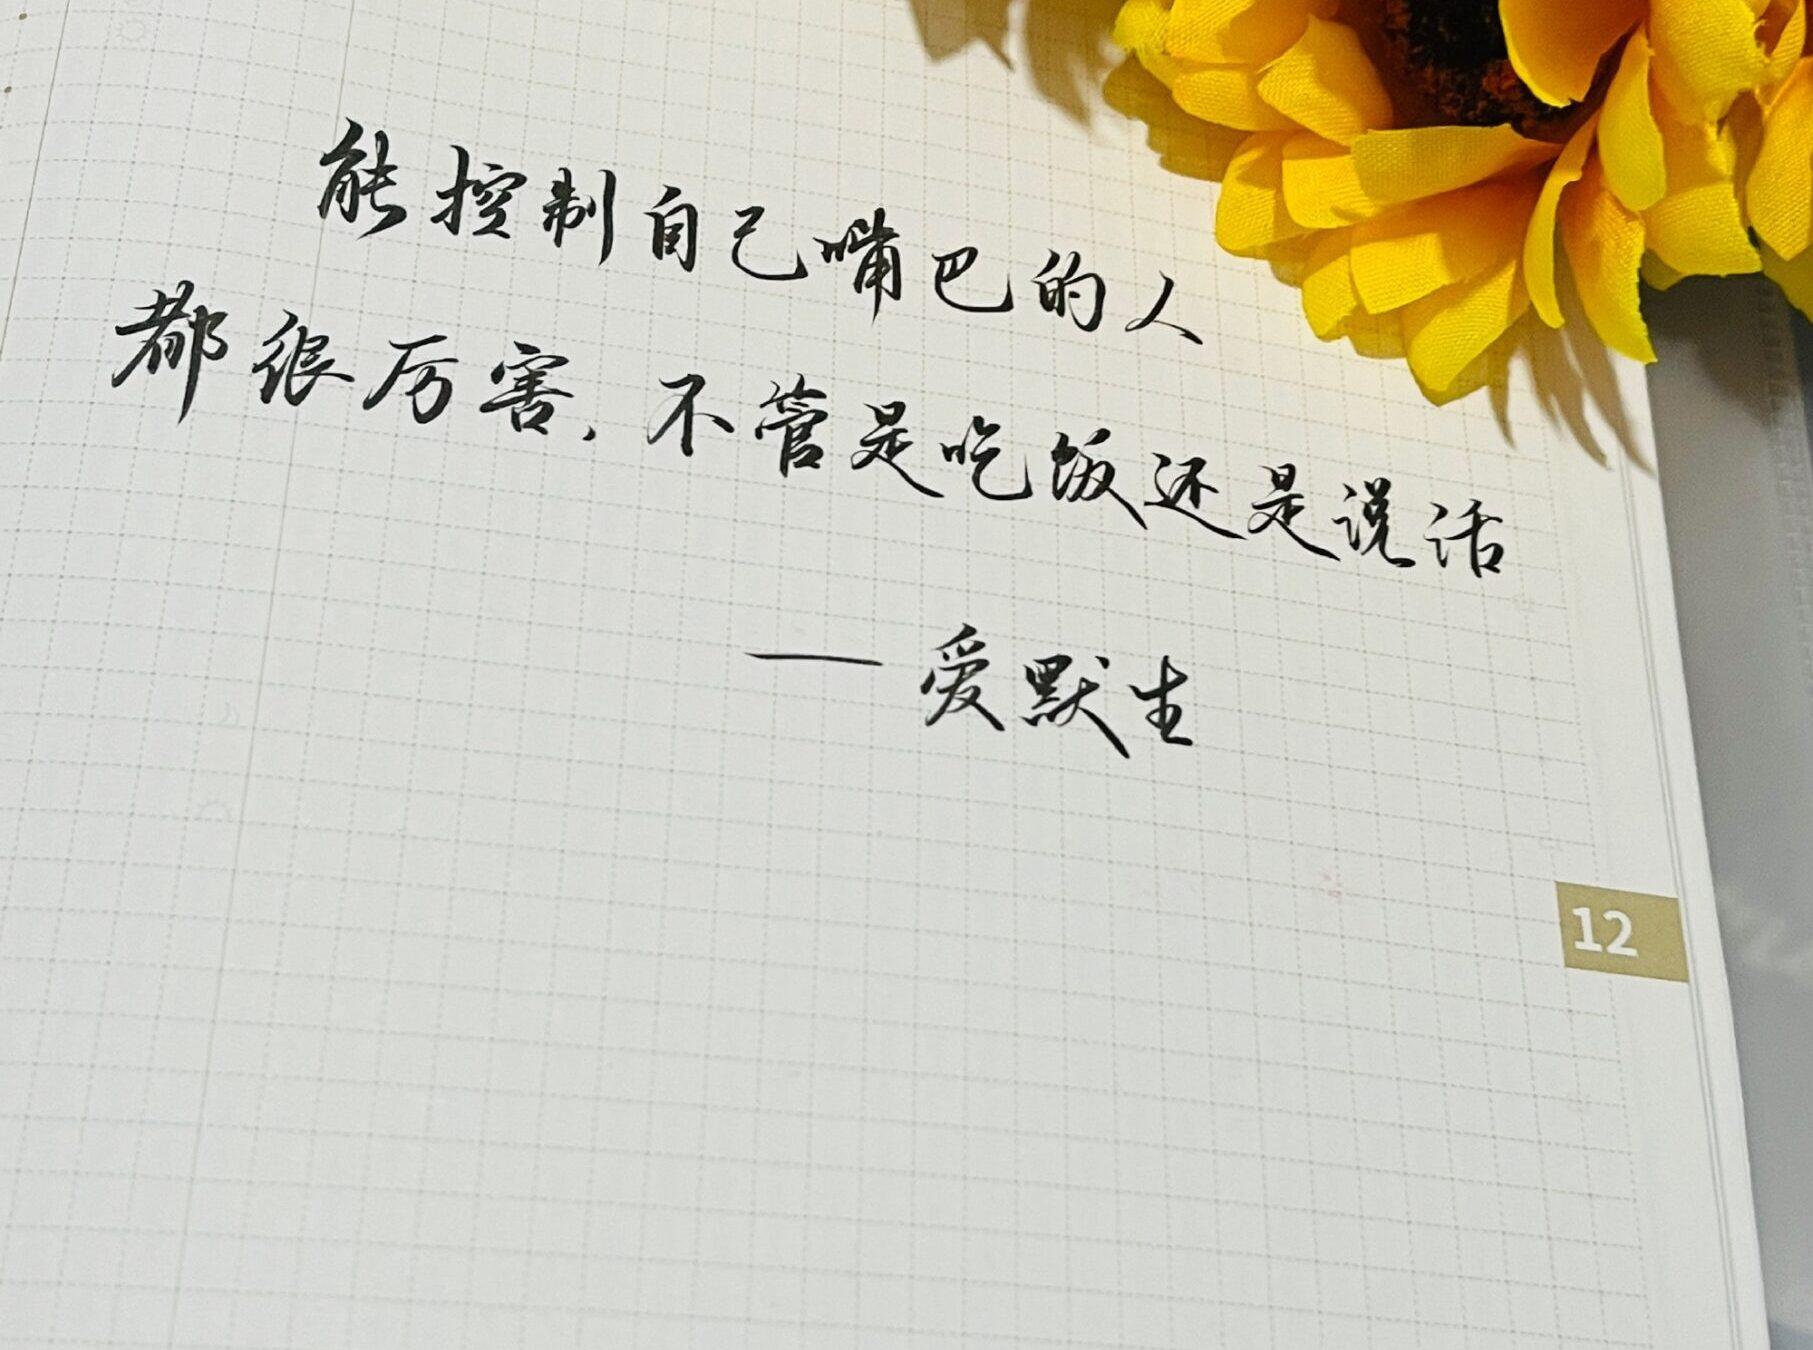 能控制自己嘴巴的人
都很厉害,不管是吃饭还是说话
—爱默生
12